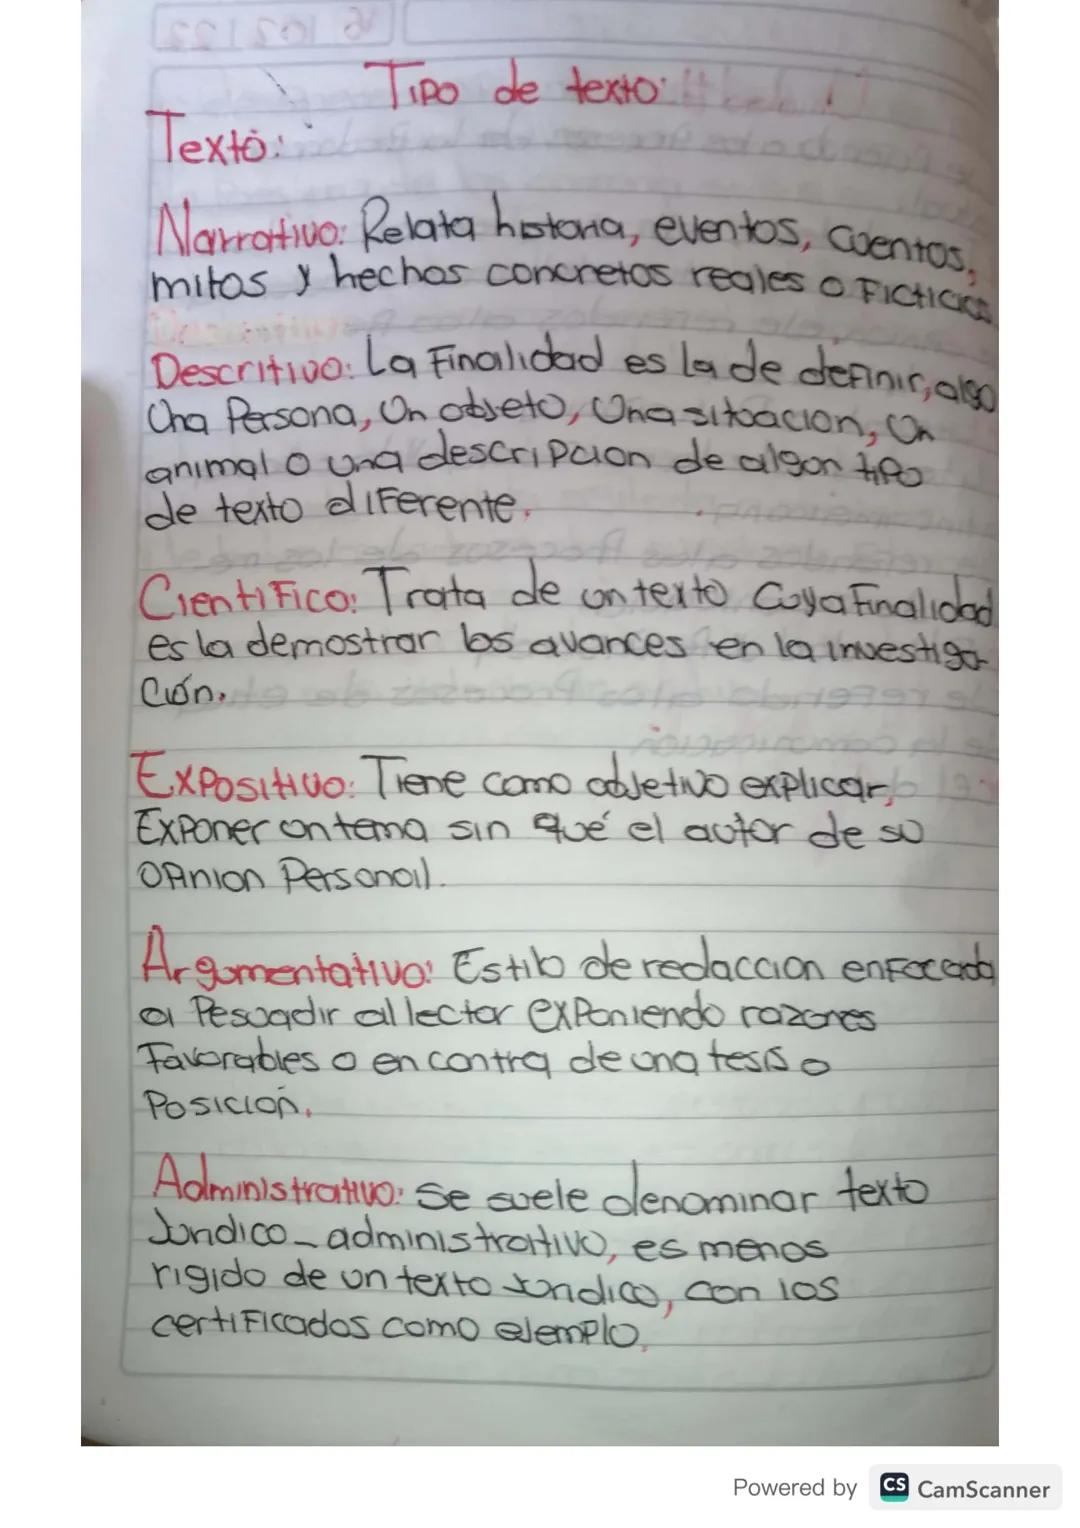 Tipo de texto:
Texto:
Narrativo: Relata historia, eventos, cuentos,
mitos y hechos concretos reales o Ficticios
Descritivo: La Finalidad es la de definir, algo
Una Persona, Un objeto, Una situacion, Un
animal o una descripcion de algun tipo
de texto diferente.
Cientifico: Trata de un texto cuya Finalidad
es la demostrar los avances en la investiga-
ción.
Expositivo: Tiene como objetivo explicar,
Exponer un tema sin qué el autor de su
opinion Personal.
Argumentativo: Estilo de redaccion enfocada
a Pesuadir al lector exponiendo razones
Favorables o en contra de una tesis o
Posición.
Administrativo: Se suele denominar texto
Jurídico-administrativo, es menos
rigido de un texto Juridico, con los
certificados como ejemplo.
Powered by CS CamScanner